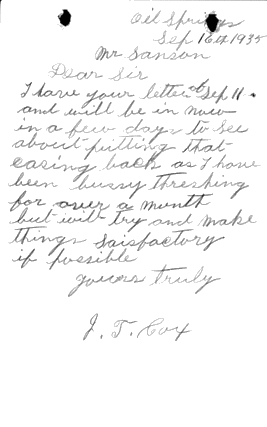 Oil Springs
Sep 16th 1935
Mr Sanson
Dear Sir
I have your letter of Sep 11.
and will be in now
in a few days to see
about putting that
casing back as I have
been bussy threshing
for over a month
but will try and make
things saisfactory
if possible
yours truly
J. T. Cox